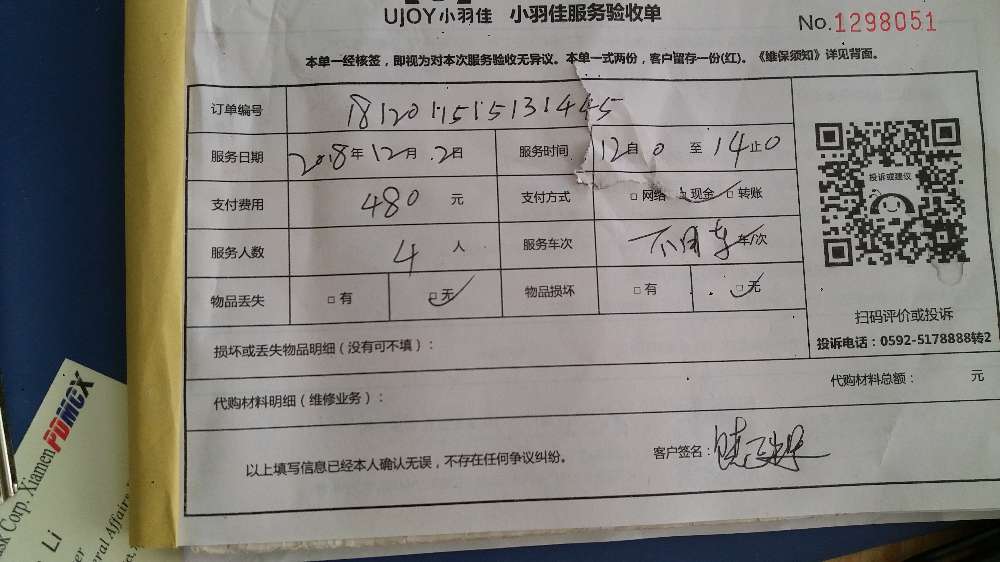 UJOY小羽佳 小羽佳服务验收单
No.1298051
本单一经核签，即视为对本次服务验收无异议。本单一式两份，客户留存一份(红)。《维保须知》详见背面。
订单编号 1812011515131445
服务日期 2018年12月2日 服务时间 12自0至14止0
支付费用 480元 支付方式 □网络 □现金 □转账
服务人数 4人 服务车次 不用车 车/次
物品丢失 □有 □无 物品损坏 □有 □无
投诉或建议
扫码评价或投诉
投诉电话：0592-5178888转2
损坏或丢失物品明细（没有可不填）：
代购材料明细（维修业务）： 代购材料总额： 元
以上填写信息已经本人确认无误，不存在任何争议纠纷。 客户签名：
PDMCX
sk Corp. Xiamen
Li
eral Affairs